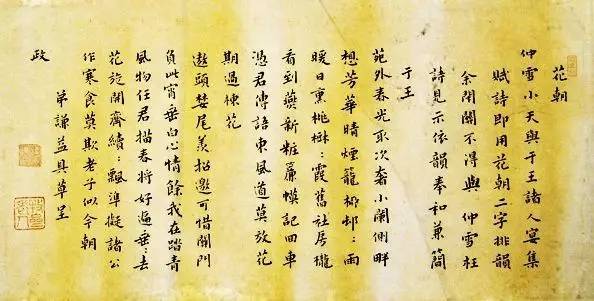 花朝
仲雪小天與于王諸人宴集
賦詩即用花朝二字排韻
余閉關不得與 仲雪枉
詩見示依韻奉和兼簡
于王
苑外春光取次奢小闌側畔
想芳華晴煙籠柳邨〻雨
暖日熏桃樹〻霞舊社房櫳
看到燕新粧簾幙記回車
憑君傳語東風道莫放花
期過楝花
遨頭婪尾羨招邀可惜關門
負此宵垂白心情餘我在踏青
風物任君描春將好遍垂〻去
花旋開齊續〻飄準擬諸公
作寒食莫欺老子似今朝
弟謙益具草呈
政